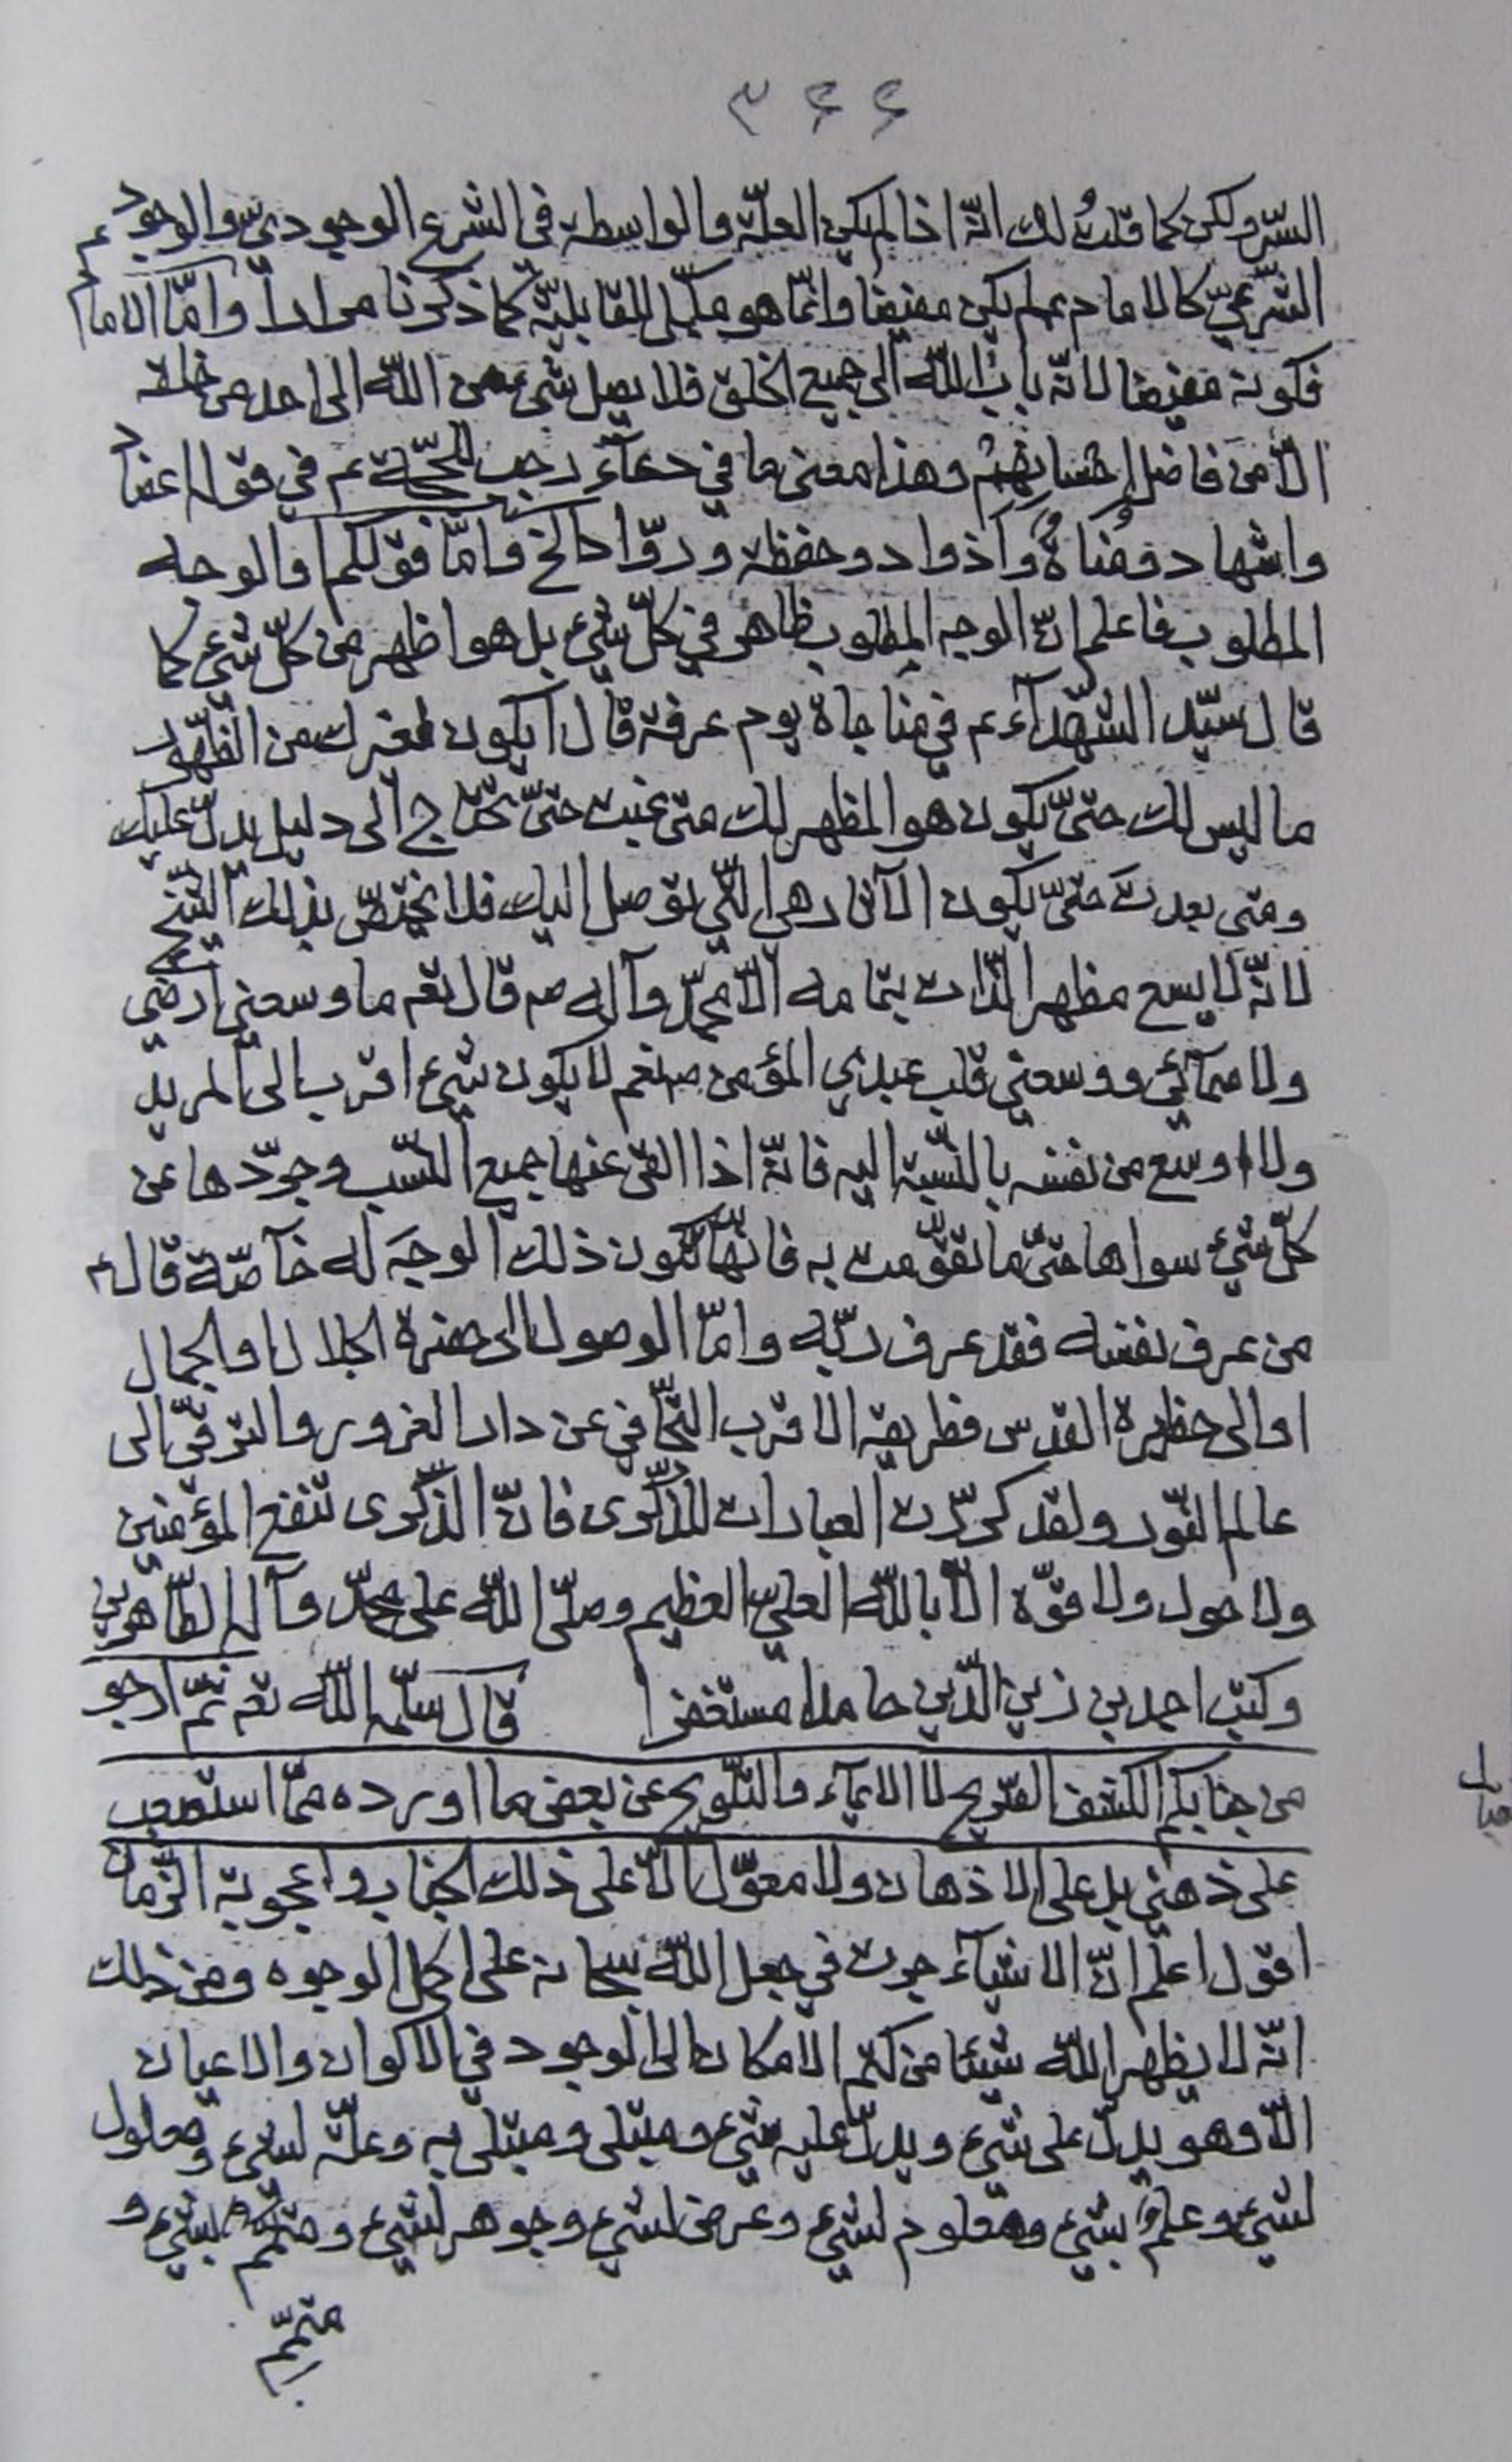 ۳۶۶
السّر ولكن كما قلتُ لك انّه اذا لم يكن العلّة والواسطة فى الشرع الوجودىّ والوجود
الشّرعىّ كالامام عم لم يكن مفيضا وانّما هو مكمّل للقابليّة كما ذكرنا مرارا وامّا الامام
فكونه مفيضا لانّه باب اللّه الى جميع الخلق فلا يصل شىء من اللّه الى احد من خلقه
الّا من فاضل وهذا معنى ما في دعآء رجب للحجّة عم في قوله اعضاد
واشهاد ومُناةٌ وأذواد وحفظة وروّاد الخ وامّا قولكم والوجه
المطلوب فاعلم انّ الوجه المطلوب ظاهر في كلّ شىء بل هو اظهر من كلّ شىء كما
قال سيّد الشهدآء عم في مناجاة يوم عرفة قال ايكون لغيرك من الظّهور
ما ليس لك حتىّ يكون هو المظهر لك متى غبت حتىّ تحتاج الى دليل يدلّ عليك
ومتى بعدتَ حتىّ يكون الآثار هي التّي توصل اليك فلا يختصّ بذلك الشّيخ
لانّه لا يسع مظهر الذّات بتمامه الّا محمّد وآله صم قال تعم ما وسعني ارضي
ولا سمآئي ووسعني قلب عبدي المؤمن نعم لا يكون شىء اقرب الى المريد
ولا اوسع من نفسه بالنّسبة اليه فانّه اذا القى عنها جميع النّسب وجرّدها عن
كلّ شىء سواها حتىّ ما تقوّمت به فانّها تكون ذلك الوجَه له خآصّة قال عم
من عرف نفسه فقد عرف ربّه وامّا الوصول الى حضرة الجلال والجمال
او الى حظيرة القدس فطريقه الاقرب التّجافي عن دار الغرور والترقّي الى
عالم النّور ولقد كرّرت العبارات للذّكرى فانّ الذّكرى تنفع المؤمنين
ولا حول ولا قوّة الّا باللّه العليّ العظيم وصلّى اللّه على محمّد وآله الطّاهرين
وكتب احمد بن زين الدّين حامدا مستغفرا قال سلّمه اللّه تعم ثمّ ارجو
من جنابكم الكشف الصّريح لا الايمآء والتّلويح عن بعض ما اورده ممّا استصعب
على ذهني بل على الاذهان ولا معوّل الّا على ذلك الجناب واعجوبة الزّمان
اقول اعلم انّ الاشيآء جرت في جعل اللّه سبحانه على اكمل الوجوه ومن ذلك
انّه لا يظهر اللّه شيئا من كتم الامكان الى الوجود في الاكوان والاعيان
الّا وهو يدلّ على شىء ويدلّ عليه شىء ومبتلى ومبتلى به وعلّة لشىء ومعلول
لشىء وعلم بشىء ومعلوم لشىء وعرض لشىء وجوهر لشىء ومتمّم بشىء و
متمّم